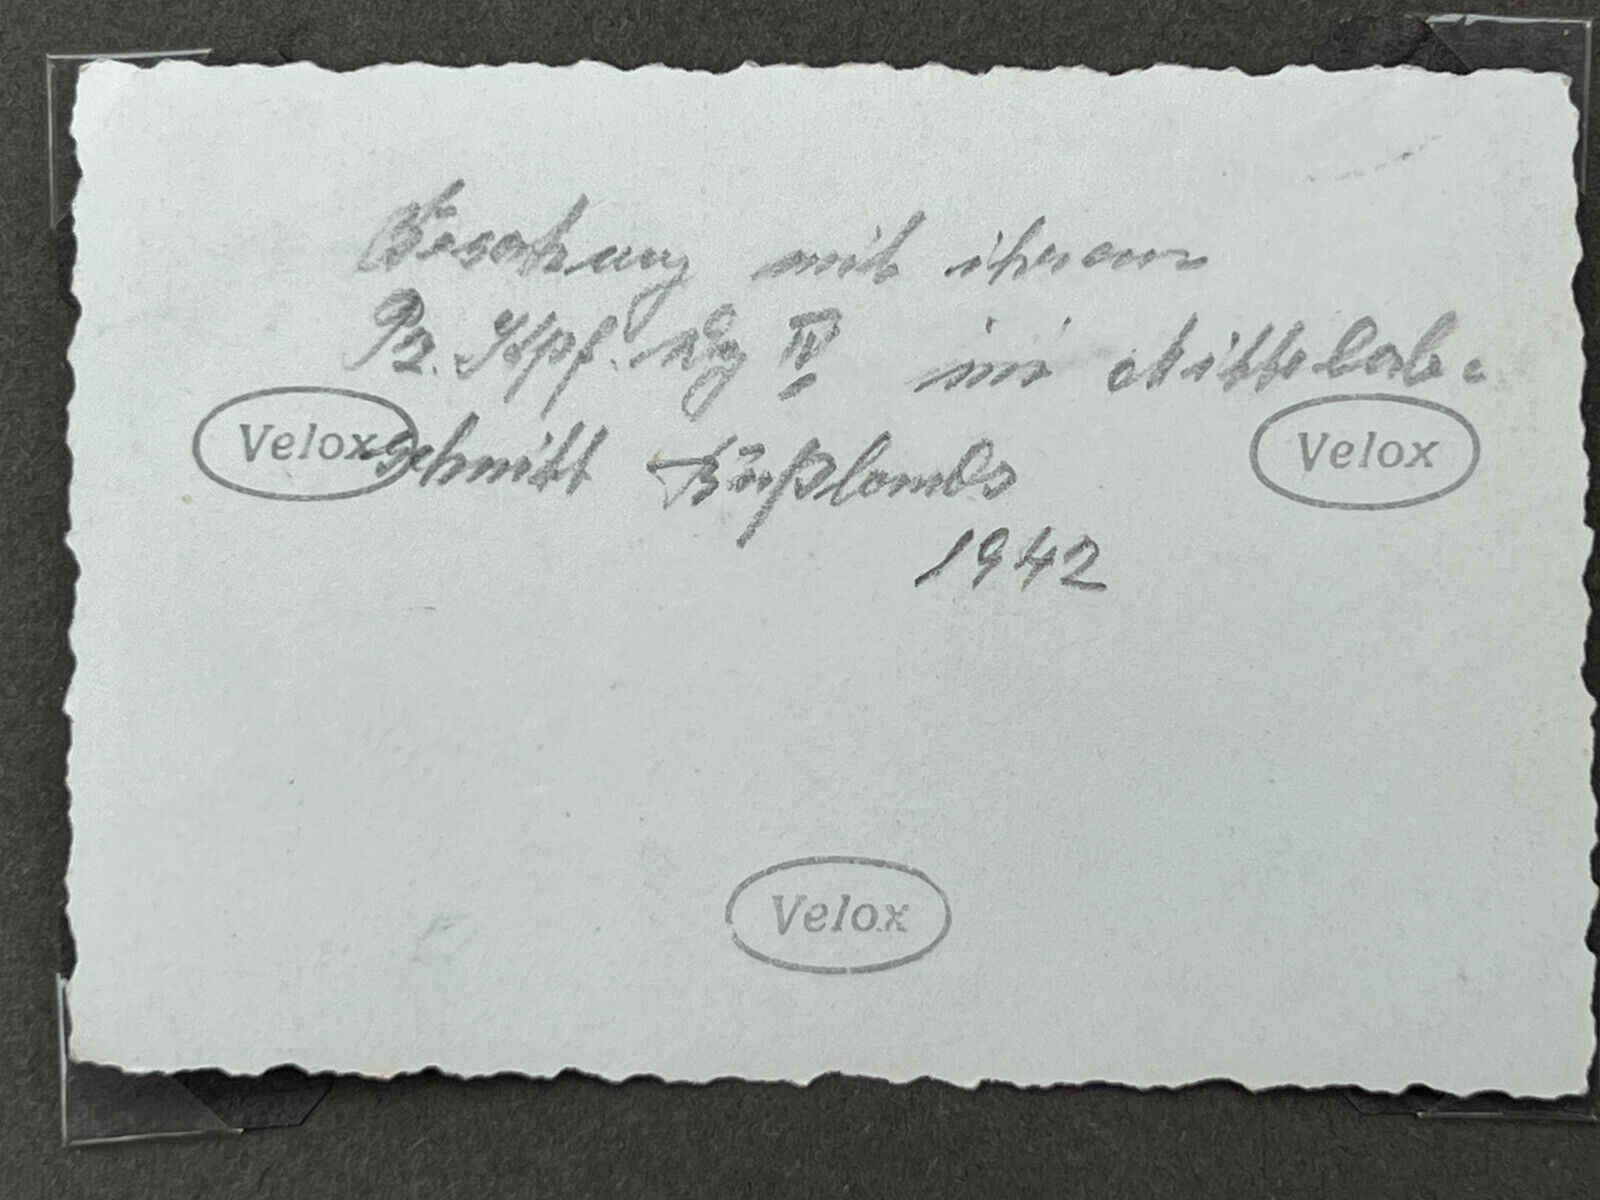 Besatzung mit ihrem
Pz. Kpf. Wg IV im Mittelab-
schnitt Rußlands
1942
Velox
Velox
Velox